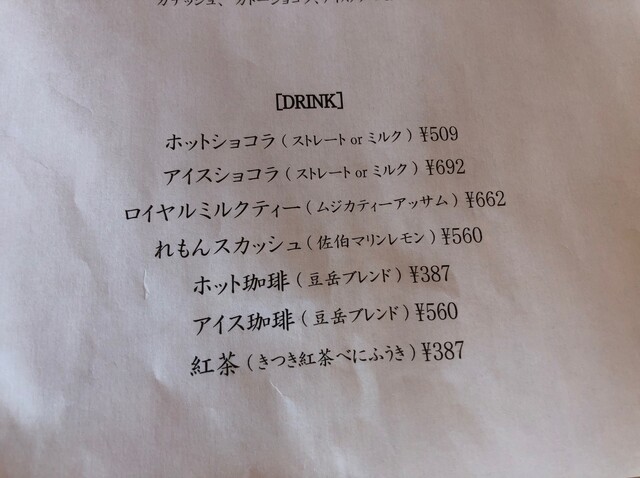 [DRINK]
ホットショコラ ( ストレート or ミルク ) ¥509
アイスショコラ ( ストレート or ミルク ) ¥692
ロイヤルミルクティー ( ムジカティーアッサム ) ¥662
れもんスカッシュ ( 佐伯マリンレモン ) ¥560
ホット珈琲 ( 豆岳ブレンド ) ¥387
アイス珈琲 ( 豆岳ブレンド ) ¥560
紅茶 ( きつき紅茶べにふうき ) ¥387